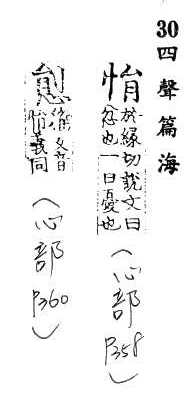 30 四聲篇海
悁
於緣切說文曰
忿也一曰憂也
(心部 P358)
籀文音
悁義同
(心部 P360)